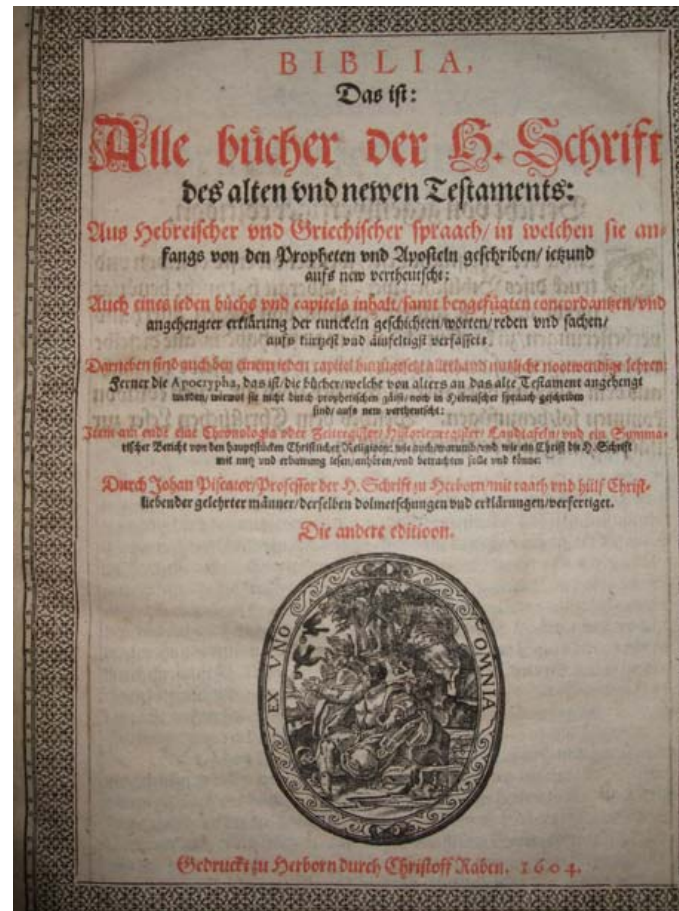 BIBLIA,
Das ist:
Alle bücher der H. Schrift
des alten vnd newen Testaments:
Aus Hebreischer vnd Griechischer spraach/ in welchen sie an-
fangs von den Propheten vnd Aposteln geschriben/ ietzund
aufs new vertheutscht:
Auch eines ieden büchs vnd capitels inhalt/ samt beygefügten concordantzen/ vnd
angehengter erklärung der tunckeln geschichten/ wörten/ reden vnd sachen/
aufs kürtzest vnd äinfeltigst verfasset:
Darneben sind auch bey einem ieden capitel hinzugesetzt allerhand nutzliche nootwendige lehren:
Ferner die Apocrypha, das ist/ die bücher/ welche von alters an das alte Testament angehengt
worden/ wiewol sie nicht durch prophetischen geist/ noch in Hebraischer spraach geschriben
sind/ aufs new vertheutscht:
Item am ende eine Chronologia oder Zeitregister/ Historienregister/ Landtafeln/ vnd ein Summa-
rischer Bericht von den hauptstücken Christlicher Religioon: wie auch/ warumb/ vnd wie ein Christ die H. Schrift
mit nutz vnd erbawung lesen/ anhören/ vnd betrachten solle vnd könne:
Durch Johan Piscator/ Professor der H. Schrift zu Herborn/ mit raath vnd hülf Christ-
liebender gelehrter männer/ derselben dolmetschungen vnd erklärungen/ verfertiget.
Die andere editioon.
EX VNO OMNIA
Gedruckt zu Herborn durch Christoff Raben. 1604.